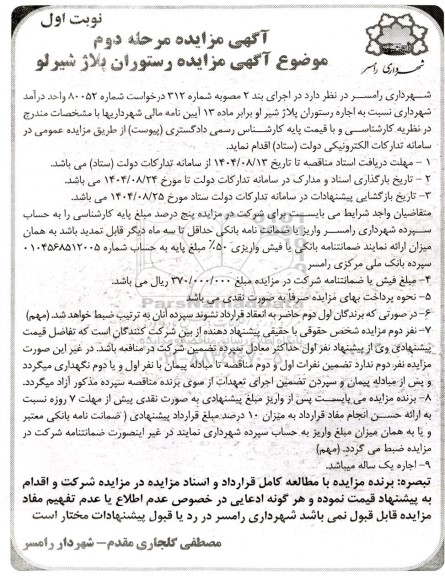 نوبت اول
آگهی مزایده مرحله دوم
موضوع آگهی مزایده رستوران پلاژ شیرلو
شهرداری رامسر
شهرداری رامسر در نظر دارد در اجرای بند ۲ مصوبه شماره ۳۱۲ درخواست شماره ۸۰۰۵۲ واحد درآمد
شهرداری نسبت به اجاره رستوران پلاژ شیر او برابر ماده ۱۳ آیین نامه مالی شهرداریها با مشخصات مندرج
در نظریه کارشناسی و با قیمت پایه کارشناس رسمی دادگستری (پیوست) از طریق مزایده عمومی در
سامانه تدارکات الکترونیکی دولت (ستاد) اقدام نماید.
۱ – مهلت دریافت اسناد مناقصه تا تاریخ ۱۴۰۴/۰۸/۱۳ از سامانه تدارکات دولت (ستاد) می باشد.
۲ – تاریخ بارگذاری اسناد و مدارک در سامانه تدارکات دولت تا مورخ ۱۴۰۴/۰۸/۲۴ می باشد.
۳– تاریخ بازگشایی پیشنهادات در سامانه تدارکات دولت ستاد مورخ ۱۴۰۴/۰۸/۲۵ می باشد.
متقاضیان واجد شرایط می بایست برای شرکت در مزایده پنج درصد مبلغ پایه کارشناسی را به حساب
سپرده شهرداری رامسر واریز یا ضمانت نامه بانکی حداقل تا سه ماه دیگر قابل تمدید باشد به همان
میزان ارائه نمایند ضمانتنامه بانکی یا فیش واریزی ۵۰٪ مبلغ پایه به حساب شماره ۰۱۰۴۵۶۸۵۱۲۰۰۵
سپرده بانک ملی مرکزی رامسر
۴– مبلغ فیش یا ضمانتنامه شرکت در مزایده مبلغ ۳۷۰/۰۰۰/۰۰۰ ریال می باشد.
۵– نحوه پرداخت بهای مزایده صرفا به صورت نقدی می باشد
۶– در صورتی که برندگان اول دوم حاضر به انعقاد قرارداد نشوند سپرده آنان به ترتیب ضبط خواهد شد. (مهم)
۷– نفر دوم مزایده شخص حقوقی یا حقیقی پیشنهاد دهنده از بین شرکت کنندگان است که تفاضل قیمت
پیشنهادی وی از پیشنهاد نفر اول حداکثر معادل سپرده تضمین شرکت در مناقعه باشد. در غیر این صورت
مزایده نفر دوم ندارد تضمین نفرات اول و دوم مناقصه تا مبادله پیمان با نفر اول و یا دوم نگهداری میگردد
و پس از مبادله پیمان و سپردن تضمین اجرای تعهدات از سوی برنده مناقصه سپرده مذکور آزاد میگردد.
۸– برنده مزایده می بایست پس از واریز مبلغ پیشنهادی به صورت نقدی پیش از مهلت ۷ روزه نسبت
به ارائه حسن انجام مفاد قرارداد به میزان ۱۰ درصد مبلغ قرارداد پیشنهاد ( ضمانت نامه بانکی معتبر
و یا به همان میزان مبلغ واریز به حساب سپرده شهرداری نمایند در غیر اینصورت ضمانتنامه شرکت در
مزایده ضبط می گردد. (مهم)
۹– اجاره یک ساله میباشد.
تبصره: برنده مزایده با مطالعه کامل قرارداد و اسناد مزایده در مزایده شرکت و اقدام
به پیشنهاد قیمت نموده و هر گونه ادعایی در خصوص عدم اطلاع یا عدم تفهیم مفاد
مزایده قابل قبول نمی باشد شهرداری رامسر در رد یا قبول پیشنهادات مختار است
مصطفی کلجاری مقدم– شهردار رامسر